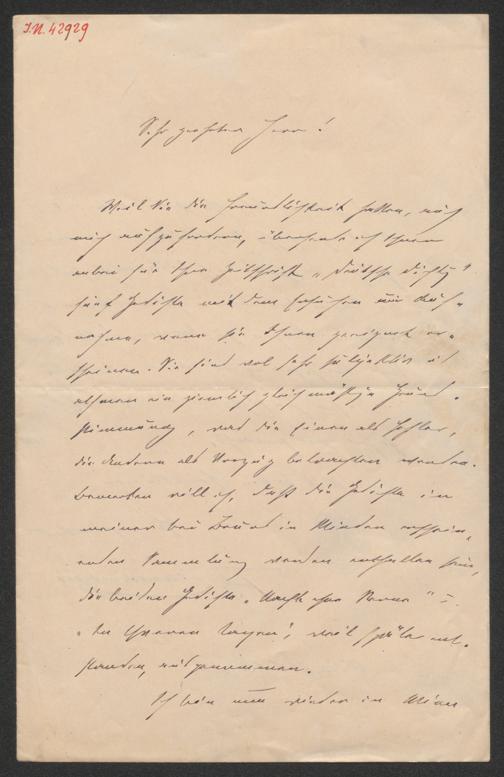 I.N. 42929
Sehr geehrter Herr!
Weil Sie die Freundlichkeit hatten, auch
mich aufzufordern, übersende ich Ihnen
anbei für Ihre Zeitschrift „Deutsche Dichtg"
fünf Gedichte mit dem Ersuchen um Auf-
nahme, wenn sie Ihnen geeignet er-
scheinen. Sie sind wol sehr subjektiv u
athmen ein ziemlich gleichmäßige Grund-
stimmung, was die Einen als Fehler,
die Andern als Vorzug betrachten werden.
Bemerken will ich, daß die Gedichte in
meiner bei Bruns in Minden erschein-
enden Sammlung werden enthalten sein,
die beiden Gedichte „Nacht ohne Sterne" u.
„In Tagen", weil später ent-
standen, ausgenommen.
Ich bin nun wieder in Wien